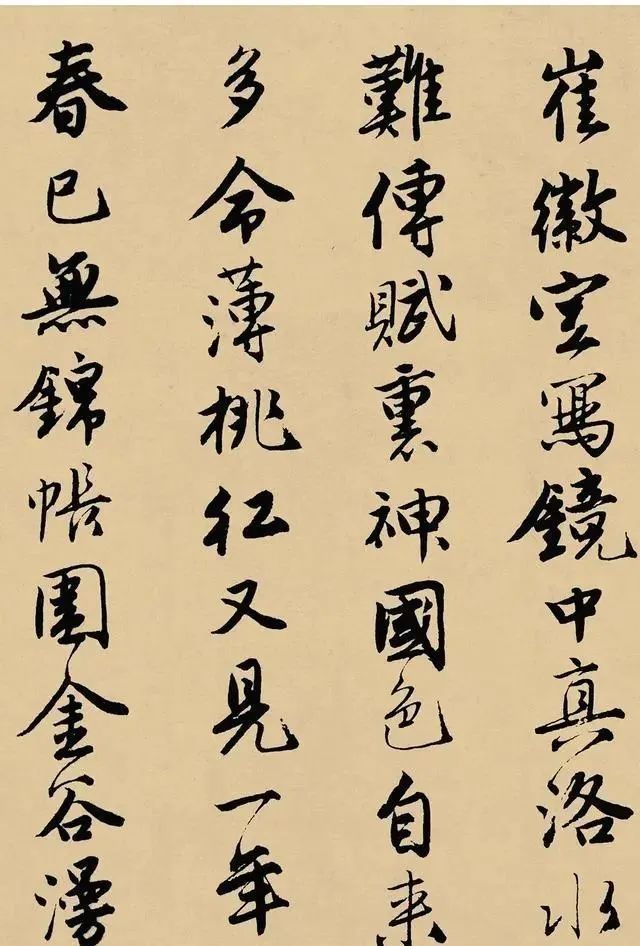 崔徽空寫鏡中真洛水
難傳賦裏神國色自来
多命薄桃紅又見一年
春已無錦帳圍金谷漫